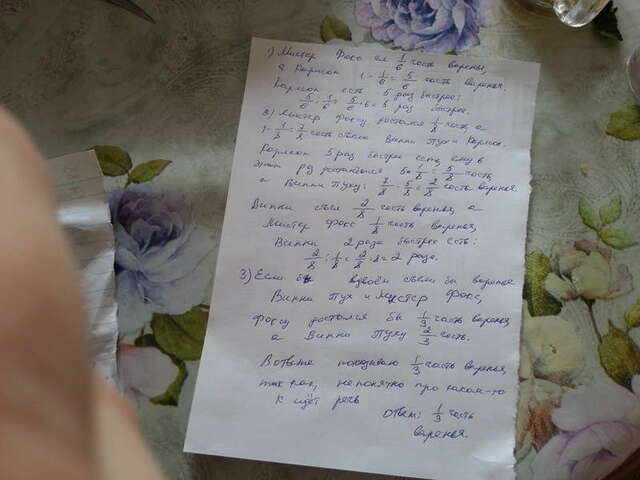 1) Мистер Фокс ел 1/6 часть варенья,
а Карлсон 1 - 1/6 = 5/6 часть варенья.
Карлсон есть 5 раз быстрее:
5/6 : 1/6 = 5/6 · 6 = 5 раз быстрее.
2) Мистеру Фоксу достался 1/8 часть, а
1 - 1/8 = 7/8 часть съели Винни Пух и Карлсон.
Карлсон 5 раз быстрее ест, ему в
раз 5 · 1/8 = 5/8 часть,
а Винни Пуху: 7/8 - 5/8 = 2/8 часть варенья
Винни съел 2/8 часть варенья, а
Мистер Фокс 1/8 часть варенья,
Винни 2 раза быстрее есть:
2/8 : 1/8 = 2/8 · 8 = 2 раза.
3) Если бы вдвоём съели бы варенье
Винни Пух и Мистер Фокс,
Фоксу достался бы 1/3 часть варенья,
а Винни Пуху 2/3 часть.
В ответе 1/3 часть варенья,
так как, непонятно про каком-то
к идёт речь
Ответ: 1/3 часть
варенья.